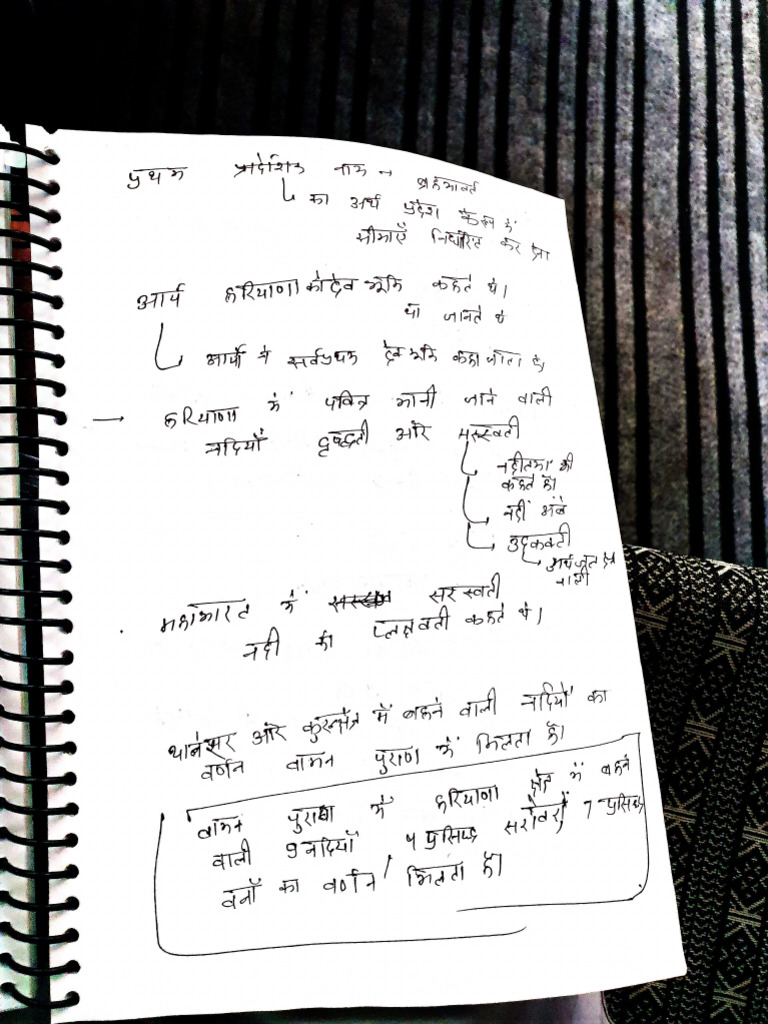 प्रथम प्रादेशिक नाम → ब्रह्मावर्त
का अर्थ प्रदेश में
सीमाएँ निर्धारित कर
आर्य हरियाणा को देव भूमि कहते थे।
या जानते थे
आर्यो ने सर्वप्रथम देव भूमि कहा जाता है,
→ हरियाणा में पवित्र मानी जाने वाली
नदियाँ दृषद्वती और सरस्वती
नदीतमा भी
कहते है।
नदी
महाभारत में सरस्वती
नदी को कहते थे।
थानेसर और कुरुक्षेत्र में बहने वाली नदियों का
वर्णन वामन पुराण में मिलता है।
वामन पुराण में हरियाणा क्षेत्र में बहने
वाली 9 नदियाँ, 4 प्रसिद्ध सरोवरों, 7 प्रसिद्ध
वनों का वर्णन मिलता है।